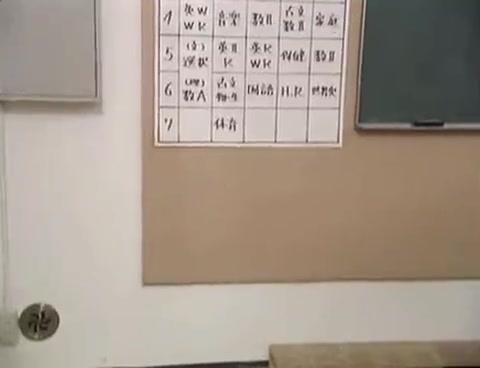 4 英W WK 音楽 数II 古文 数II 家庭
5 (文) 選択 英II R 英R WK 保健 数II
6 (理) 数A 古文 国語 H.R 世界史
7 体育